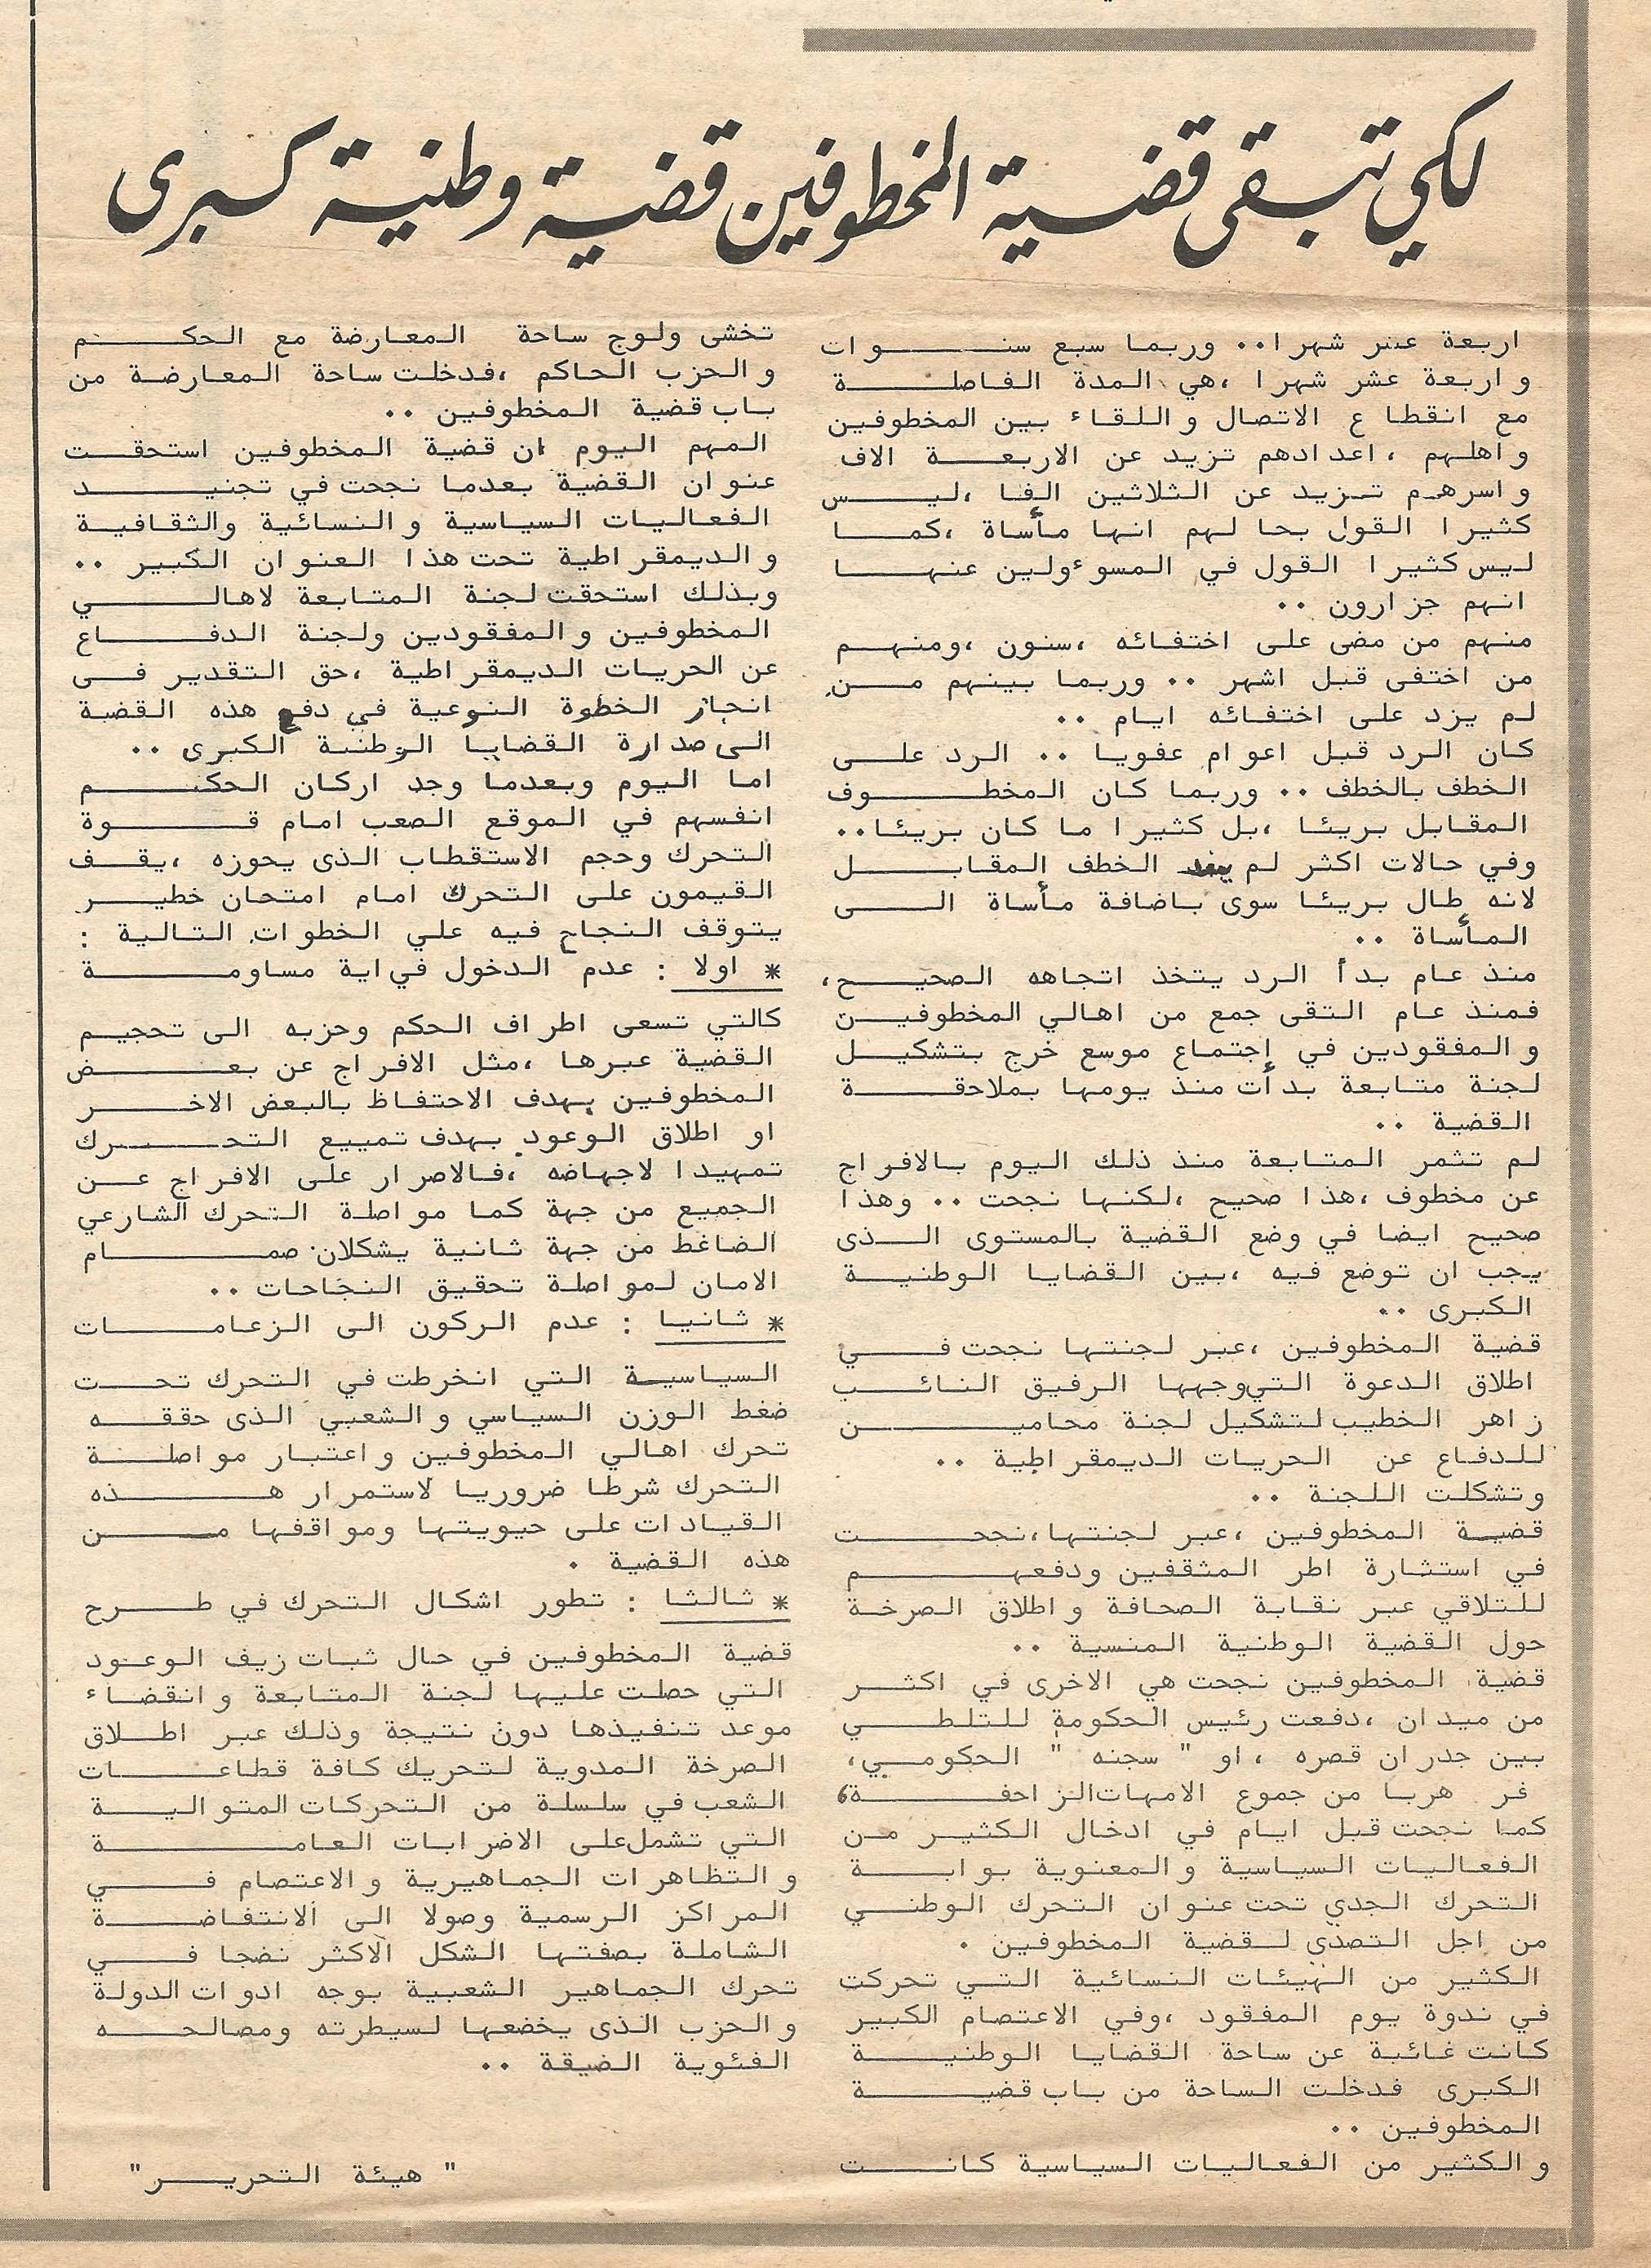 لكي تبقى قضية المخطوفين قضية وطنية كبرى
اربعة عشر شهرا.. وربما سبع سنوات
واربعة عشر شهرا ،هي المدة الفاصلة
مع انقطاع الاتصال واللقاء بين المخطوفين
واهلهم ، اعدادهم تزيد عن الاربعة الاف
واسرهم تزيد عن الثلاثين الفا ،ليس
كثيرا القول بحالهم انها مأساة ،كما
ليس كثيرا القول في المسوءولين عنها
انهم جزارون ..
منهم من مضى على اختفائه ،سنون ،ومنهم
من اختفى قبل اشهر .. وربما بينهم من
لم يزد على اختفائه ايام ..
كان الرد قبل اعوام عفويا .. الرد على
الخطف بالخطف .. وربما كان المخطوف
المقابل بريئا ،بل كثيرا ما كان بريئا..
وفي حالات اكثر لم يفد الخطف المقابل
لانه طال بريئا سوى باضافة مأساة الى
المأساة ..
منذ عام بدأ الرد يتخذ اتجاهه الصحيح،
فمنذ عام التقى جمع من اهالي المخطوفين
والمفقودين في إجتماع موسع خرج بتشكيل
لجنة متابعة بدأت منذ يومها بملاحقة
القضية ..
لم تثمر المتابعة منذ ذلك اليوم بالافراج
عن مخطوف ،هذا صحيح ،لكنها نجحت .. وهذا
صحيح ايضا في وضع القضية بالمستوى الذى
يجب ان توضع فيه ،بين القضايا الوطنية
الكبرى ..
قضية المخطوفين ،عبر لجنتها نجحت في
اطلاق الدعوة التي وجهها الرفيق النائب
زاهر الخطيب لتشكيل لجنة محامين
للدفاع عن الحريات الديمقراطية ..
وتشكلت اللجنة ..
قضية المخطوفين ،عبر لجنتها،نجحت
في استشارة اطر المثقفين ودفعهم
للتلاقي عبر نقابة الصحافة واطلاق الصرخة
حول القضية الوطنية المنسية ..
قضية المخطوفين نجحت هي الاخرى في اكثر
من ميدان ،دفعت رئيس الحكومة للتلطي
بين جدران قصره ، او " سجنه " الحكومي،
فر هربا من جموع الامهات الزاحفة،
كما نجحت قبل ايام في ادخال الكثير من
الفعاليات السياسية والمعنوية بوابة
التحرك الجدي تحت عنوان التحرك الوطني
من اجل التصدي لقضية المخطوفين .
الكثير من الهيئات النسائية التي تحركت
في ندوة يوم المفقود ،وفي الاعتصام الكبير
كانت غائبة عن ساحة القضايا الوطنية
الكبرى فدخلت الساحة من باب قضية
المخطوفين ..
والكثير من الفعاليات السياسية كانت
تخشى ولوج ساحة المعارضة مع الحكم
والحزب الحاكم ،فدخلت ساحة المعارضة من
باب قضية المخطوفين ..
المهم اليوم ان قضية المخطوفين استحقت
عنوان القضية بعدما نجحت في تجنيد
الفعاليات السياسية والنسائية والثقافية
والديمقراطية تحت هذا العنوان الكبير ..
وبذلك استحقت لجنة المتابعة لاهالي
المخطوفين والمفقودين ولجنة الدفاع
عن الحريات الديمقراطية ،حق التقدير فى
انجاز الخطوة النوعية في دفع هذه القضية
الى صدارة القضايا الوطنية الكبرى ..
اما اليوم وبعدما وجد اركان الحكم
انفسهم في الموقع الصعب امام قوة
التحرك وحجم الاستقطاب الذى يحوزه ،يقف
القيمون على التحرك امام امتحان خطير
يتوقف النجاح فيه علي الخطوات التالية :
* اولا : عدم الدخول في اية مساومة
كالتي تسعى اطراف الحكم وحزبه الى تحجيم
القضية عبرها ،مثل الافراج عن بعض
المخطوفين بهدف الاحتفاظ بالبعض الاخر
او اطلاق الوعود بهدف تمييع التحرك
تمهيدا لاجهاضه ،فالاصرار على الافراج عن
الجميع من جهة كما مواصلة التحرك الشارعي
الضاغط من جهة ثانية يشكلان صمام
الامان لمواصلة تحقيق النجاحات ..
* ثانيا : عدم الركون الى الزعامات
السياسية التي انخرطت في التحرك تحت
ضغط الوزن السياسي والشعبي الذى حققه
تحرك اهالي المخطوفين واعتبار مواصلة
التحرك شرطا ضروريا لاستمرار هذه
القيادات على حيويتها ومواقفها من
هذه القضية .
* ثالثا : تطور اشكال التحرك في طرح
قضية المخطوفين في حال ثبات زيف الوعود
التي حصلت عليها لجنة المتابعة وانقضاء
موعد تنفيذها دون نتيجة وذلك عبر اطلاق
الصرخة المدوية لتحريك كافة قطاعات
الشعب في سلسلة من التحركات المتوالية
التي تشمل على الاضرابات العامة
والتظاهرات الجماهيرية والاعتصام في
المراكز الرسمية وصولا الى الانتفاضة
الشاملة بصفتها الشكل الاكثر نضجا في
تحرك الجماهير الشعبية بوجه ادوات الدولة
والحزب الذى يخضعها لسيطرته ومصالحه
الفئوية الضيقة ..
" هيئة التحرير"